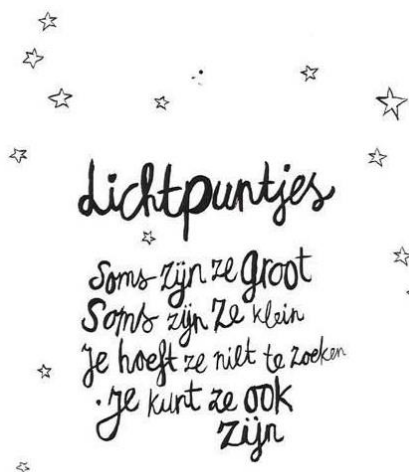 Lichtpuntjes
Soms zijn ze groot
Soms zijn ze klein
Je hoeft ze niet te zoeken
Je kunt ze ook
zijn